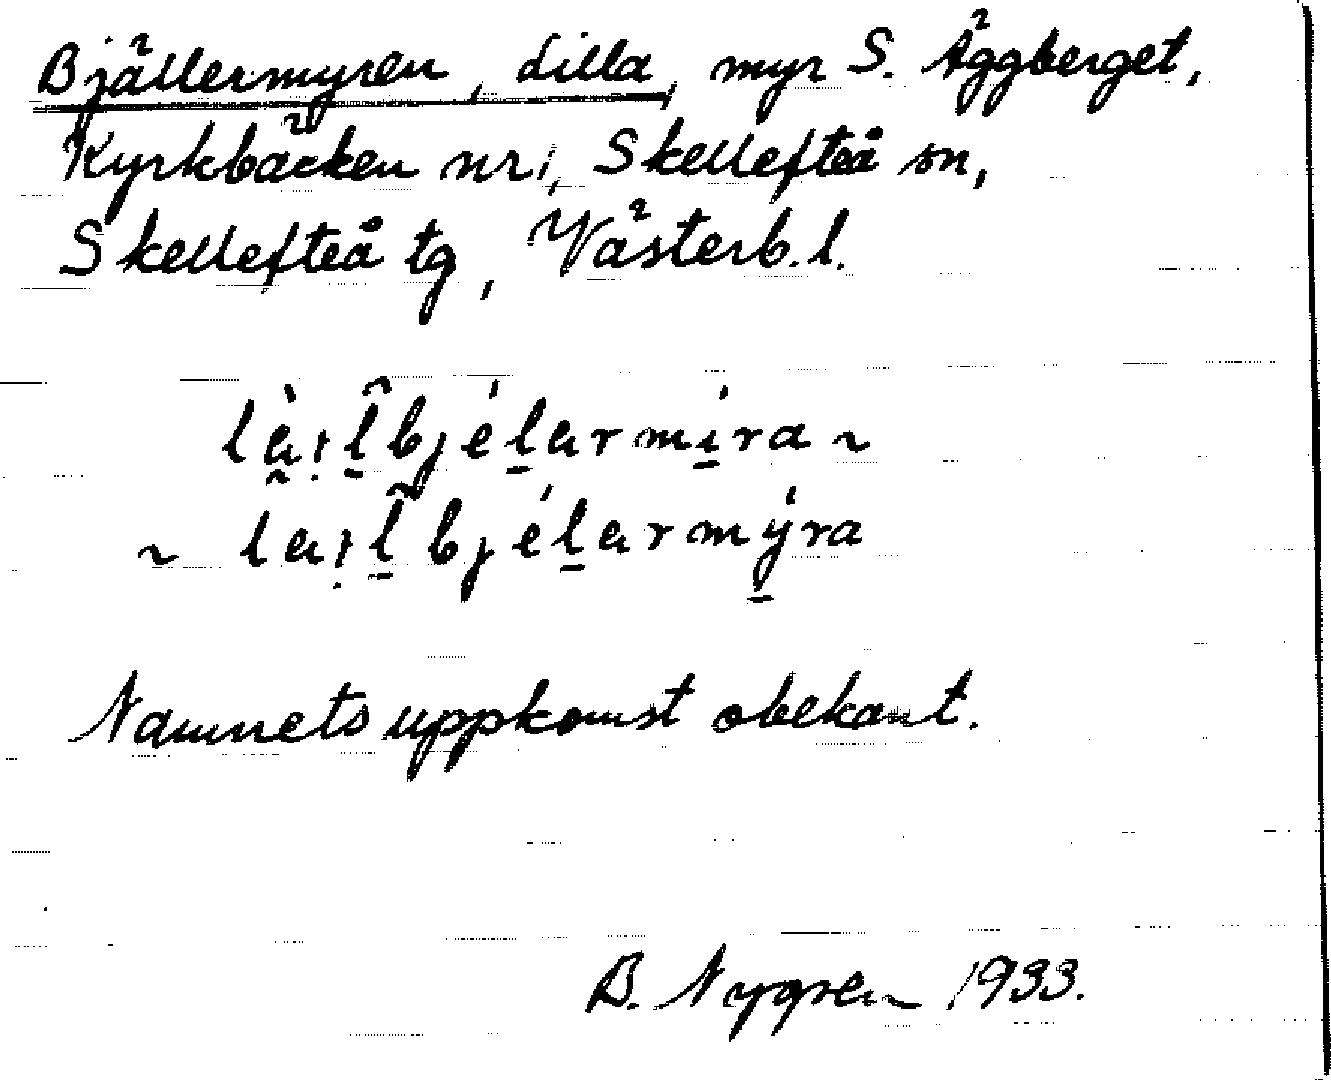 Bjällermyren, Lilla, myr S. Äggberget,
Kyrkbäcken nr 1, Skellefteå sn,
Skellefteå tg, Västerb. l.
làịl̂bjélarmíra ~
~ laịl̂bjélarmýra
Namnets uppkomst obekant.
B. Nygren 1933.